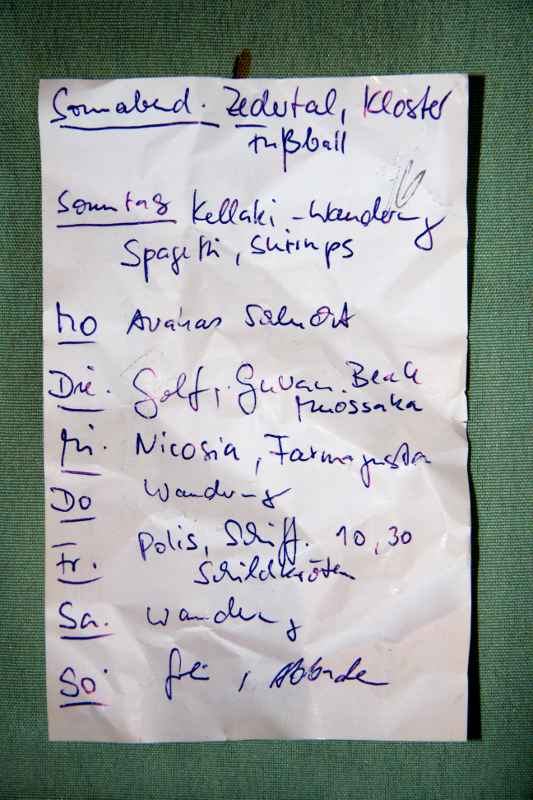 Sonnabend. Zederntal, Kloster
Fußball
Sonntag Kellaki - Wanderung
Spagetti, Shrimps
Mo Avakas
Die. Golf, Beach
Moussaka
Mi. Nicosia, Farmagusta
Do Wanderung
Fr. Polis, Schiff. 10,30
Schildkröten
Sa. Wanderung
So frei,